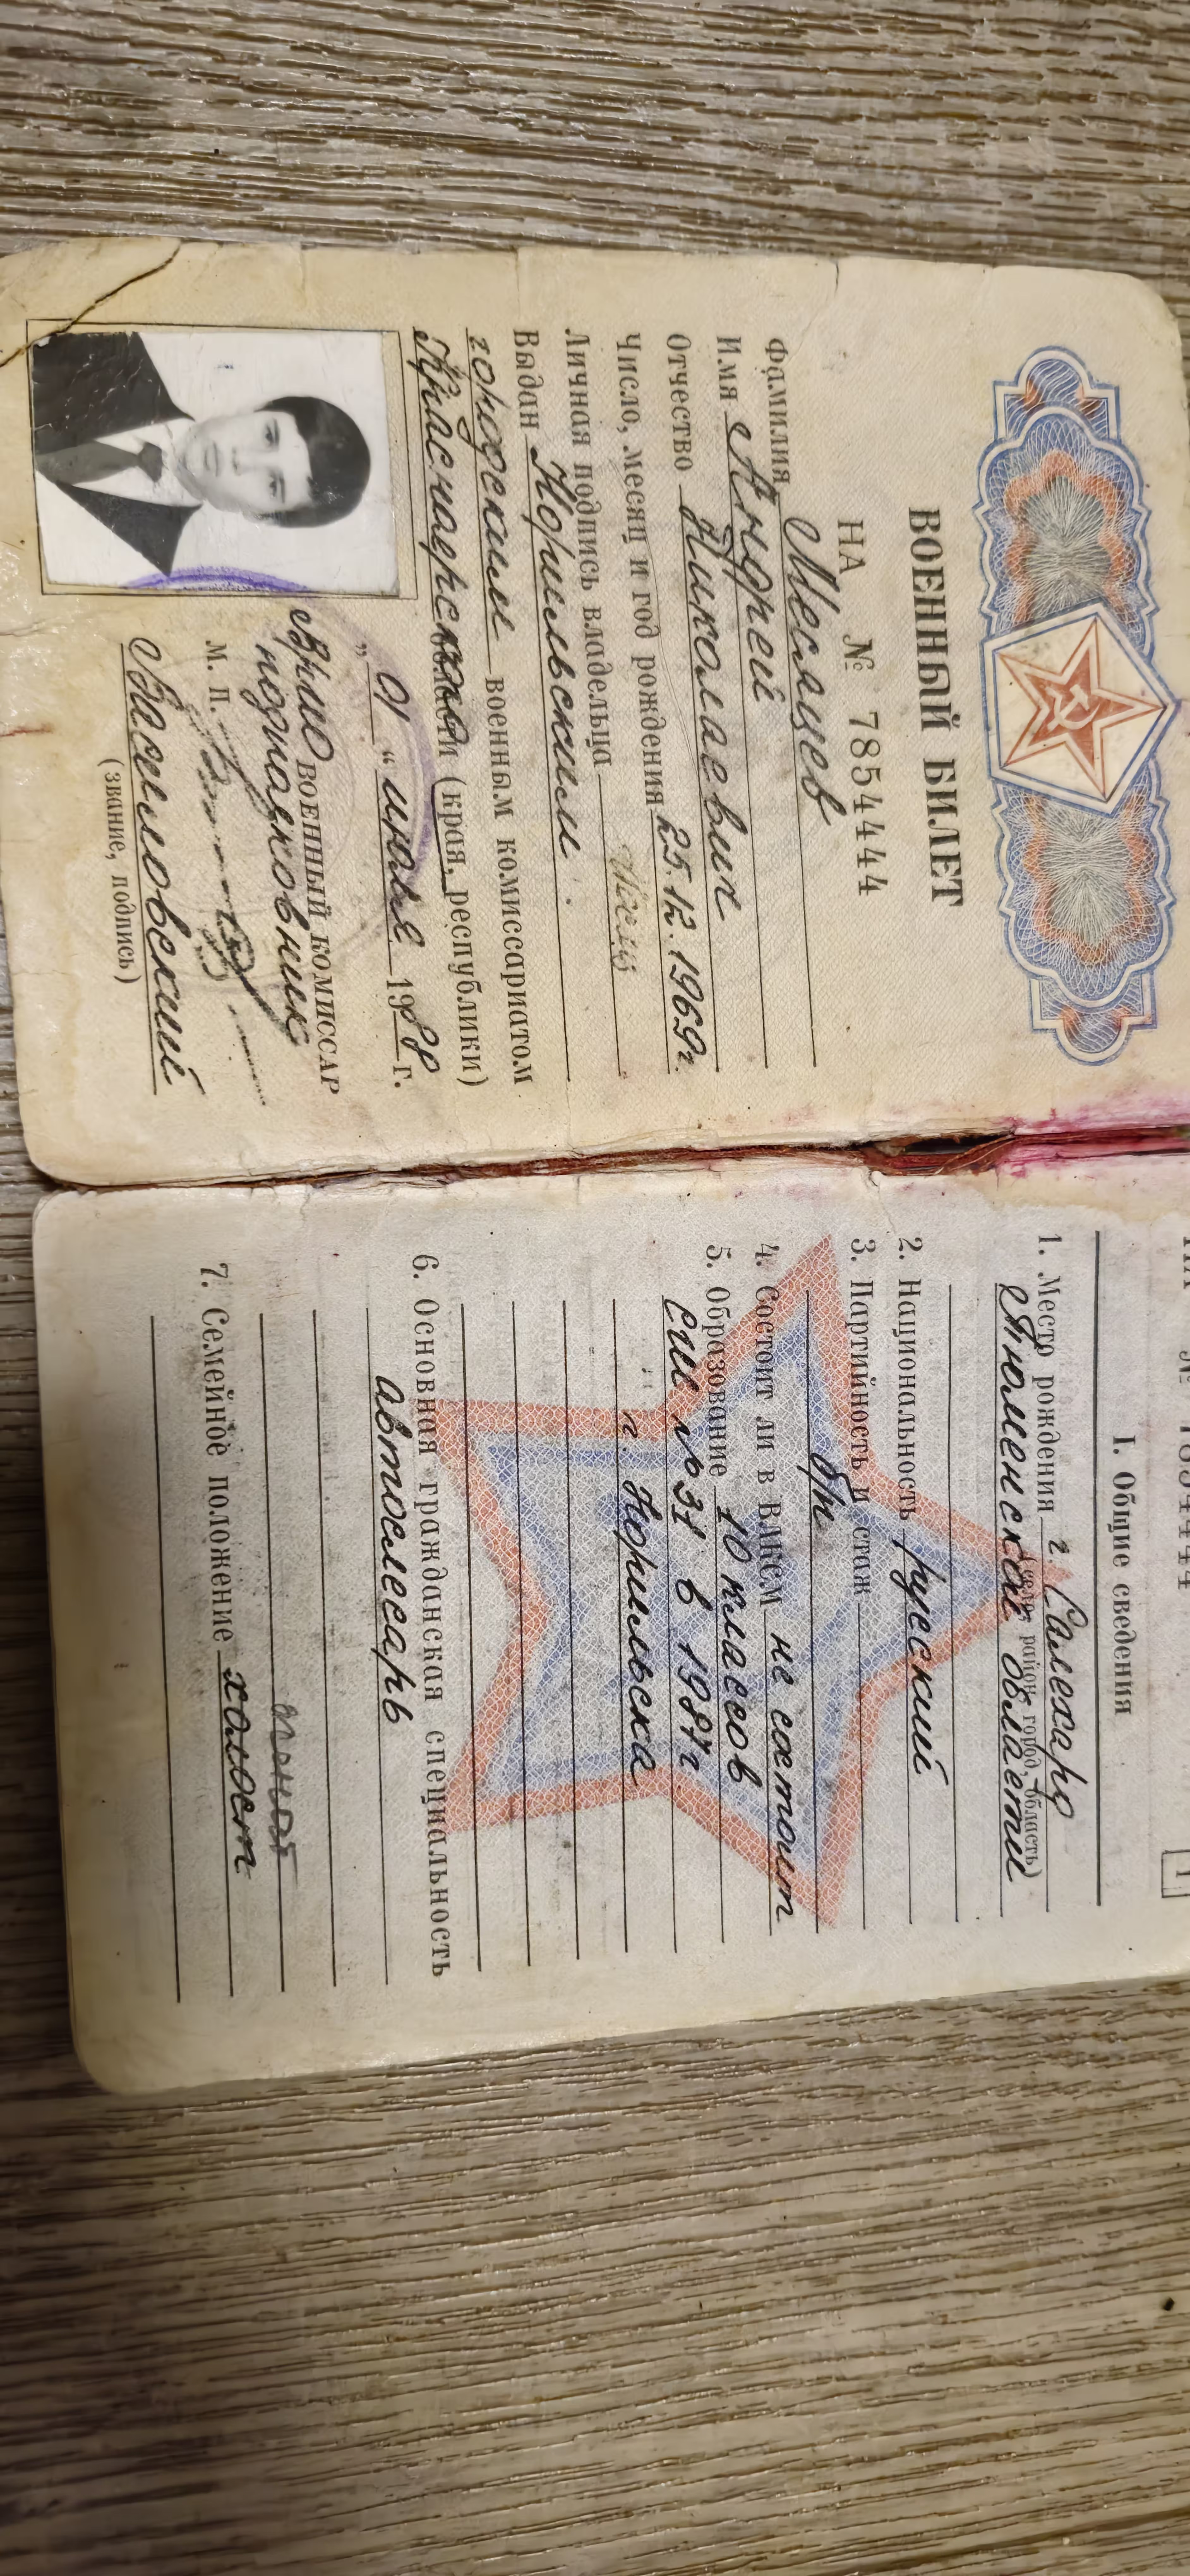 ВОЕННЫЙ БИЛЕТ
НА № 7854444
Фамилия Месяцев
Имя Андрей
Отчество Николаевич
Число, месяц и год рождения 25.12.1969г.
Личная подпись владельца
Выдан Норильским
городским военным комиссариатом
Красноярского (края, республики)
„ 01 “ июля 1988 г.
Врио ВОЕННЫЙ КОМИССАР
подполковник
М. П.
(звание, подпись)
НА № 7854444
1
I. Общие сведения
1. Место рождения г. Салехард
(село, район, город, область)
Тюменской области
2. Национальность русский
3. Партийность и стаж
б/п
4. Состоит ли в ВЛКСМ не состоит
5. Образование 10 классов
СШ №31 в 1987г
г. Норильска
6. Основная гражданская специальность
автослесарь
7. Семейное положение холост
женат